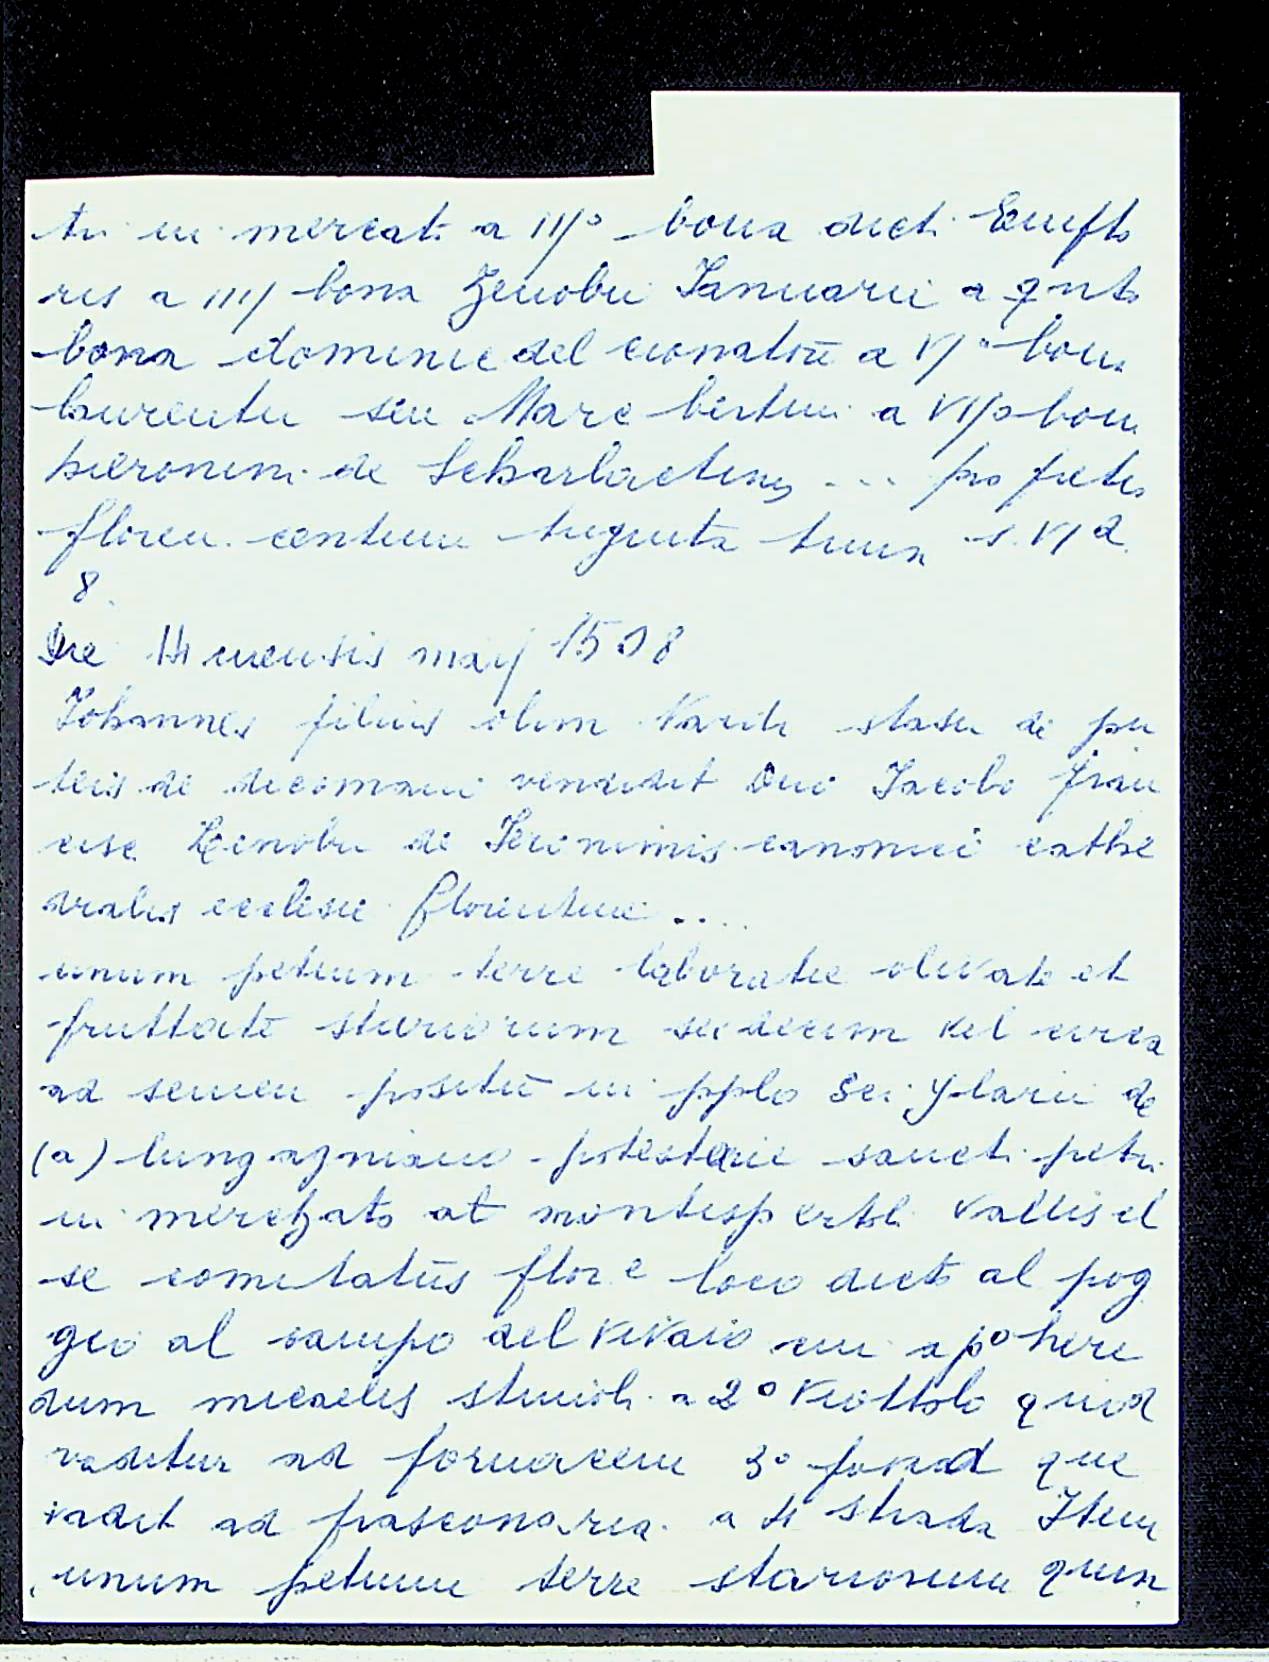 tri in mercati a IIJº bona dicti Empto
ris a IIIJ bona Zenobii Ianuarii a qnto
bona dominie del cionatōe a VJº bona
laurentii seu Marc bertini a VIJº bona
hieronimi de Scharlactinis ... pro pretio
floren. centum triginta trium s. VJ d.
8.
Die 14 mensis maij 1508
Johannes filius olim Nardi stasii de pu
teis de decomani vendidit Dno Iacobo fran
cisc Zenobii de Ieronimis canonici cathe
dralis ecclesie florentine ....
unum petium terre laboratie olivate et
fruttatē stariorum sedecim vel circa
ad semen positū in pplo Sci Ylarii de
(a) lungagniano potestarie sancti petri
in merchato at montispertoli vallis el
se comitatūs flor.e loco dicto al pog
gio al campo del vivaio cui a pº here
dum micaelis strioli a 2º viottolo quod
vaditur ad fornacem 3º fossad que
vadit ad frasconaria a 4 strada Item
unum petium terre stariorum quin